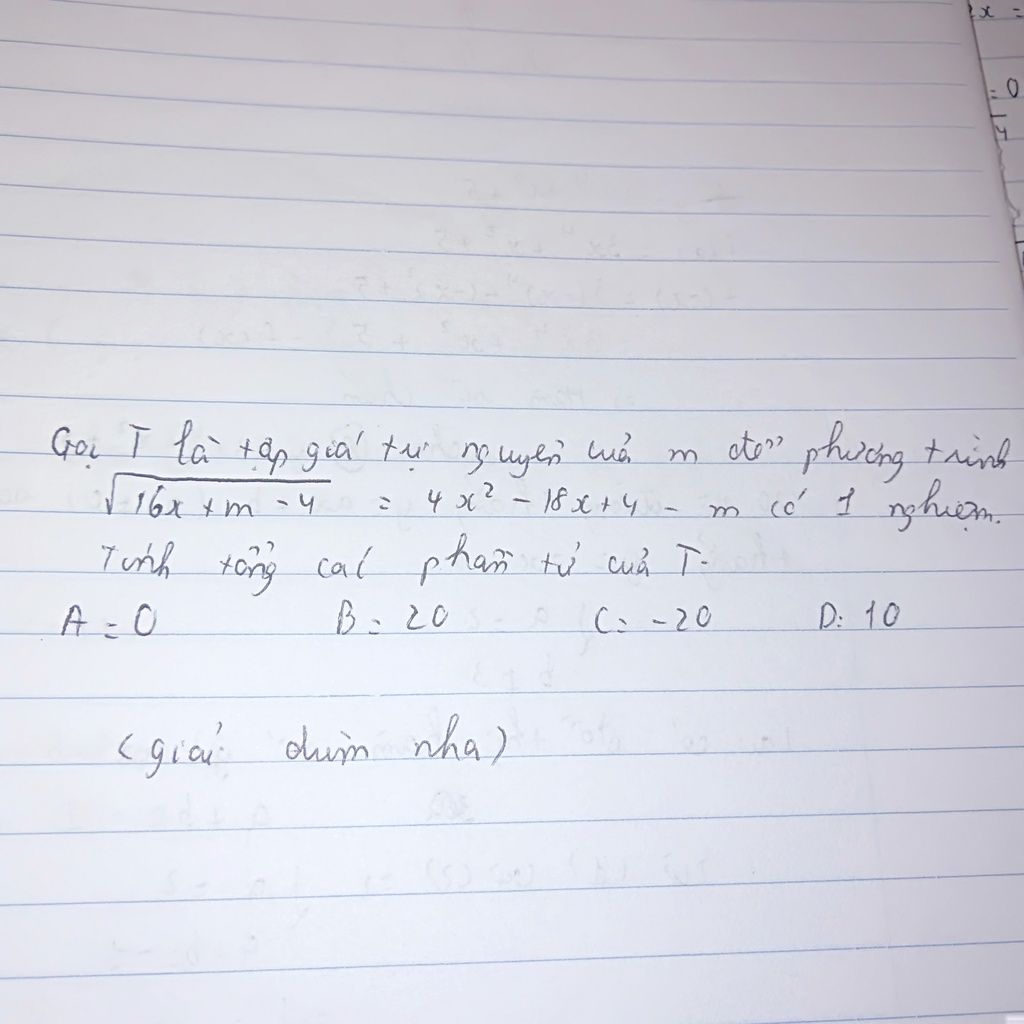 2x =
= 0
4
Gọi T là tập giá trị nguyên của m để phương trình
√16x + m - 4 = 4x² - 18x + 4 - m có 1 nghiệm.
Tính tổng các phần tử của T.
A = 0 B: 20 C: -20 D: 10
(giải dùm nha)